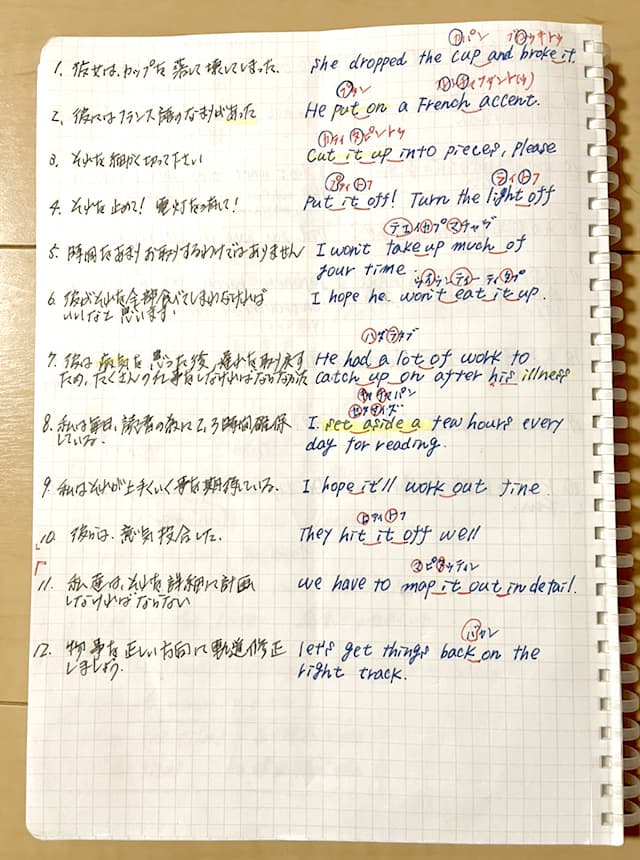 カパン ブロウキトゥ
1. 彼女は、カップを落して壊してしまった. she dropped the cup and broke it.
プタン
2、彼にはフランス語のなまりがあった He put on a French accent.
カティタピントゥ
3. それを細かく切って下さい Cut it up into pieces, please
プティトフ ライトフ
4. それを止めて! 電灯を消して! Put it off! Turn the light off
テエイカプマチャヴ
5. 時間をあまりお取りするわけではありません I won't take up much of
your time.
6. 彼がそれを全部食べてしまわなければ I hope he won't eat it up.
いいなと思います.
ハダラタブ
7. 彼は病気を患った後、遅れを取り戻す He had a lot of work to
ため、たくさんの仕事をしなければならなかった catch up on after his illness
8. 私は毎日、読書の為に2,3時間確保 I set aside a few hours every
している. day for reading.
9. 私はそれが上手くいく事を期待している. I hope it'll work out fine.
ヒティトフ
10. 彼らは、意気投合した. They hit it off well
マピタゥティン
11. 私達は、それを詳細に計画 we have to map it out in detail.
しなければならない
バカン
12. 物事を正しい方向に軌道修正 let's get things back on the
しましょう. right track.